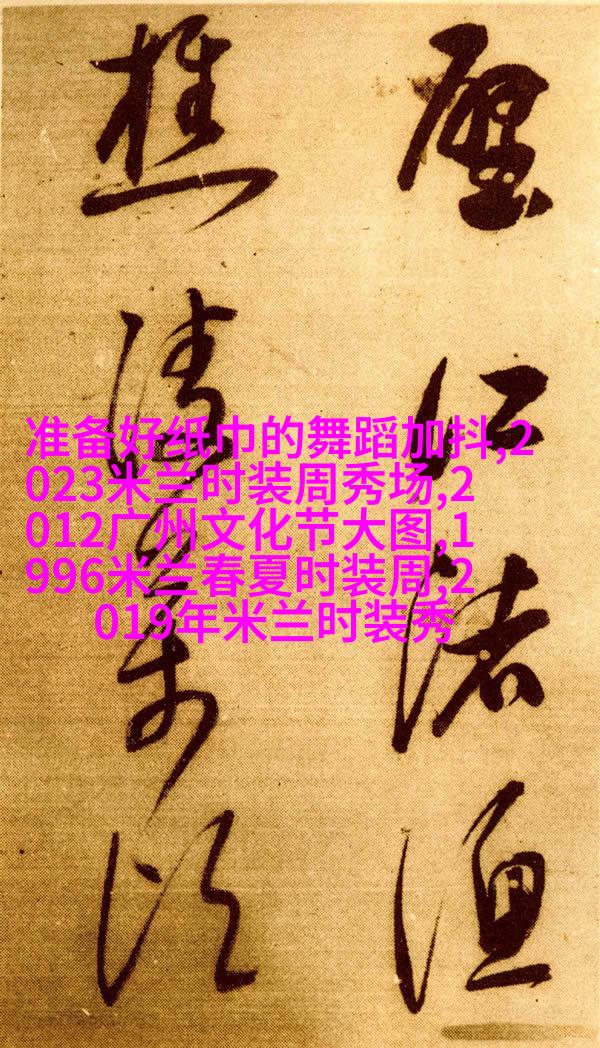 江渚漁
樵清
准备好纸巾的舞蹈加抖,2
023米兰时装周秀场,2
012广州文化节大图,1
996米兰春夏时装周,2
019年米兰时装秀